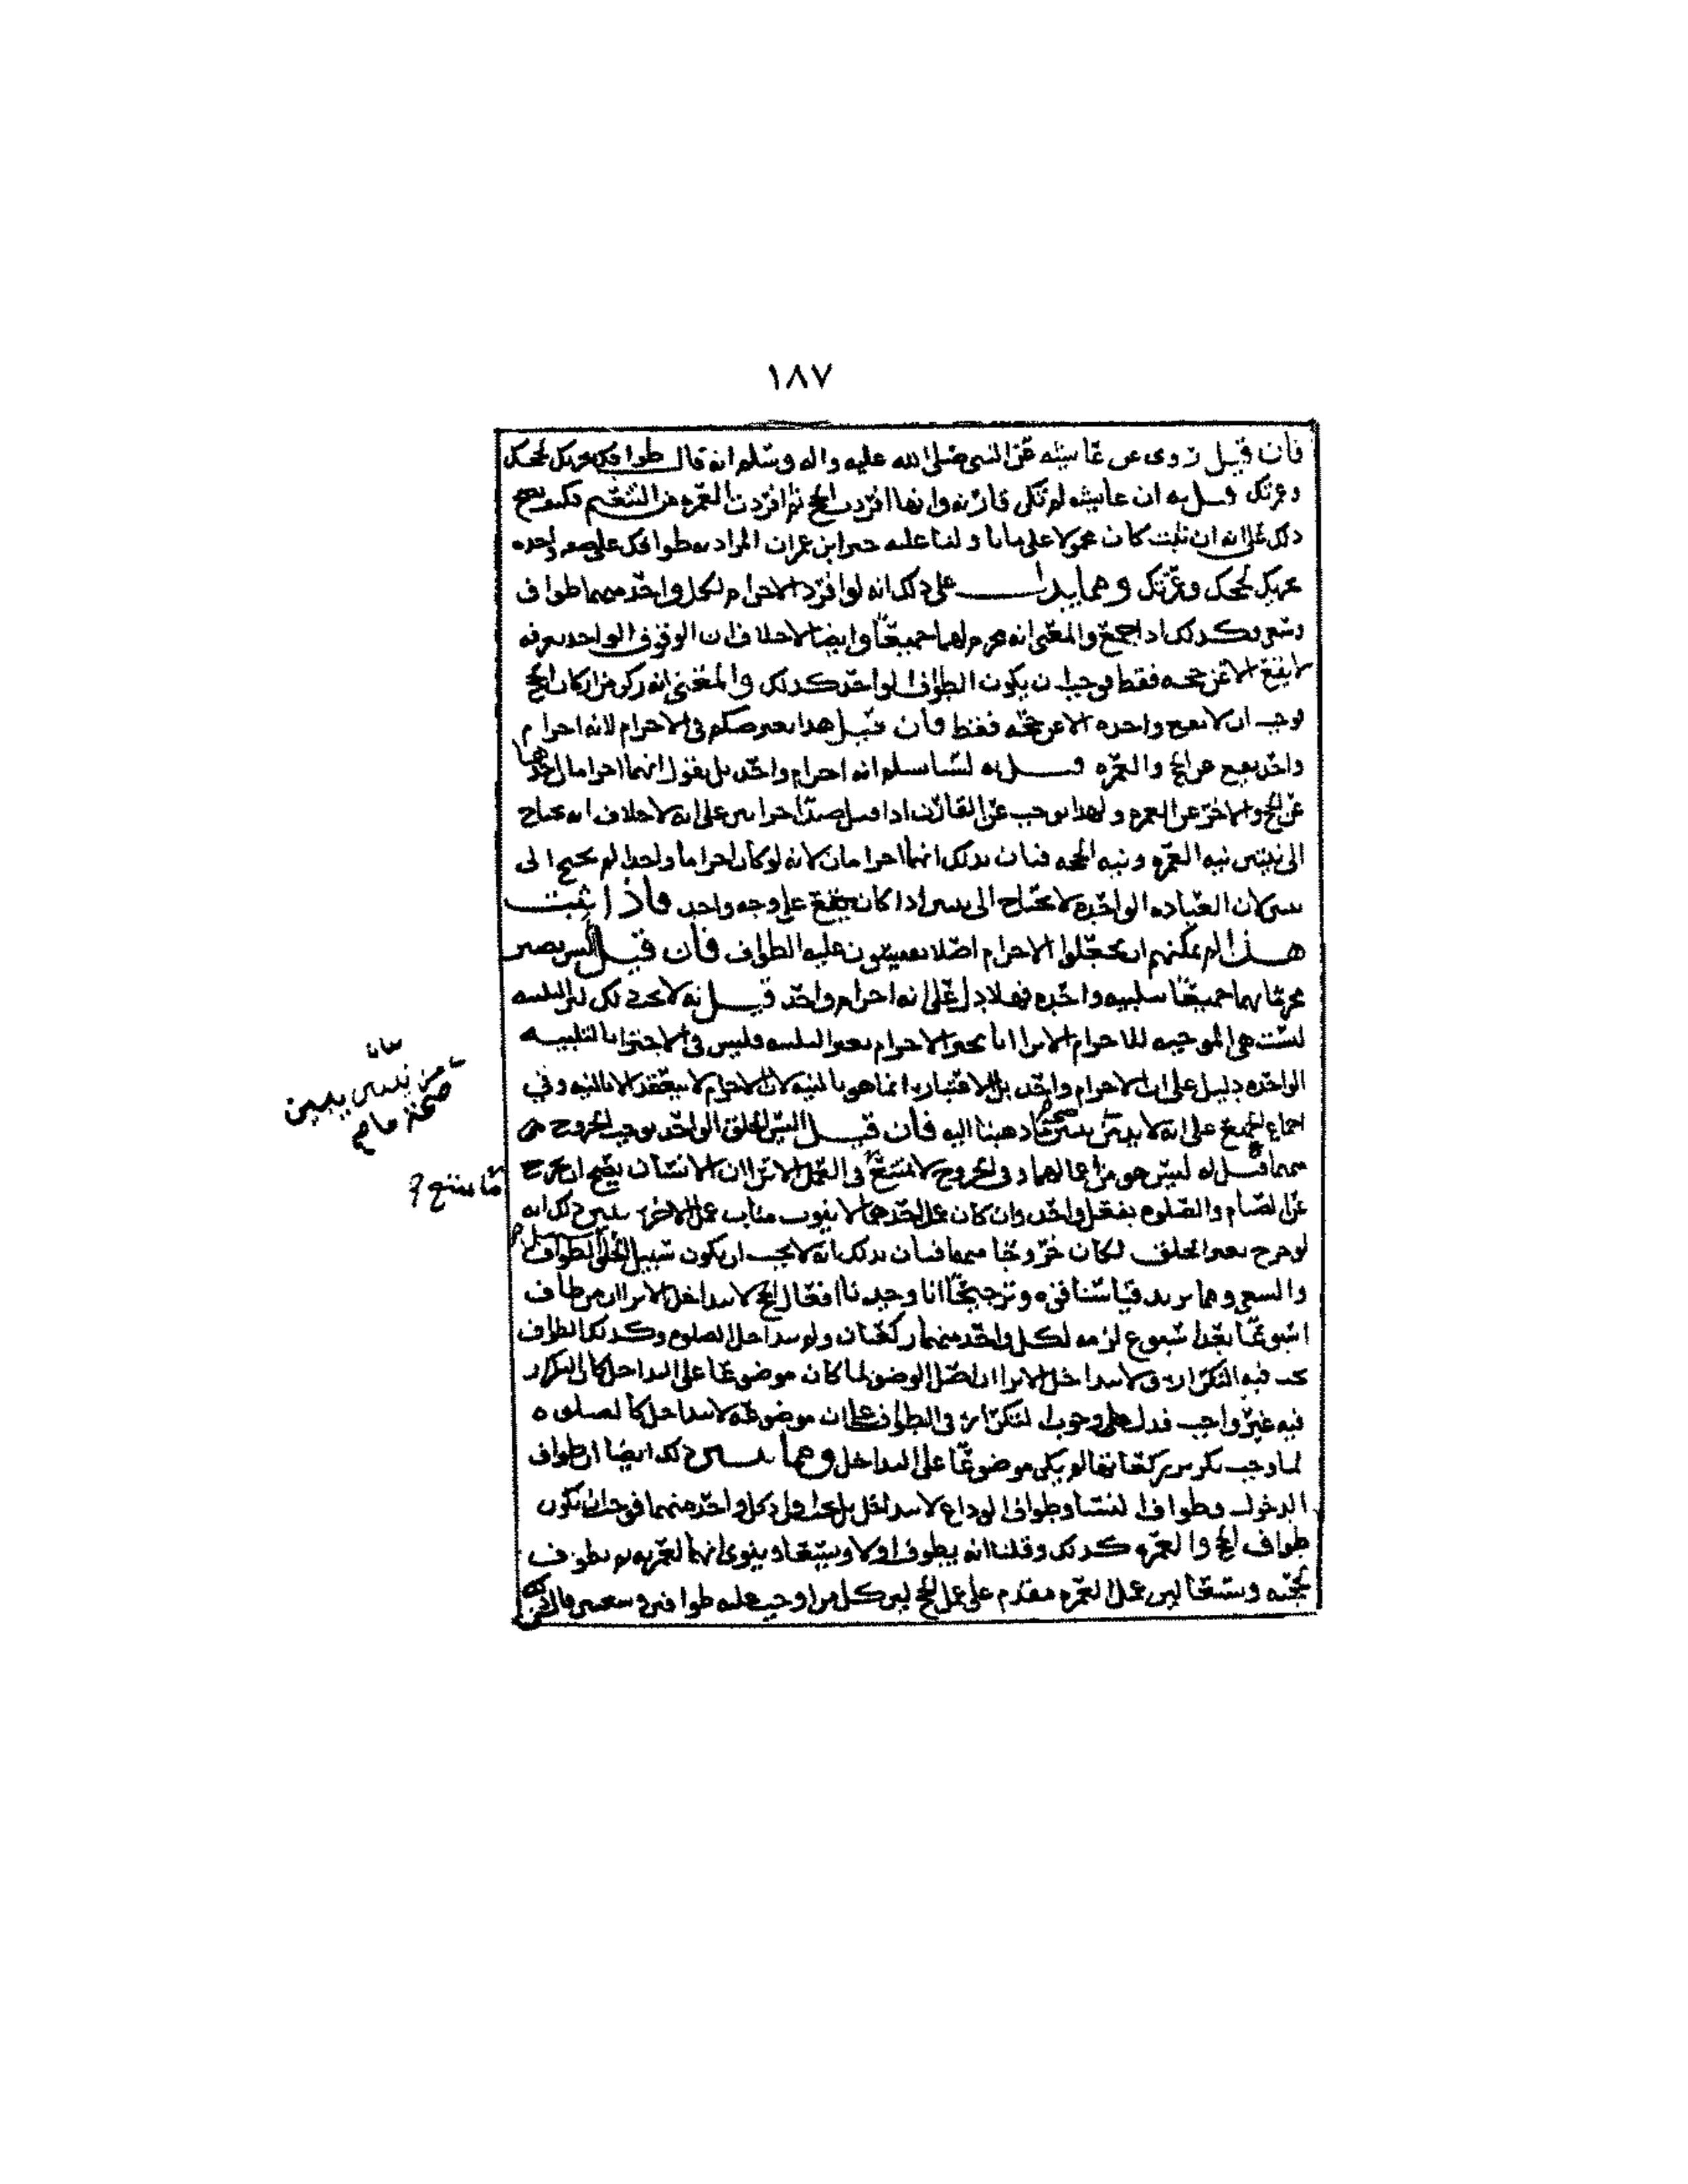 ١٨٧
فان قيل روى عن عائشه عن النبي صلى الله عليه واله وسلم انه قال طوافك يجزيك لحجك
وعمرتك قيل له ان عايشه لم تكن قارنه وانها افردت الحج ثم افردت العمره من التنعيم فكيف يصح
ذلك على انه ان ثبت كان محمولا على ما تاولنا عليه خبر ابن عمر ان المراد به طوافك على صفه واحده
يجزيك لحجك وعمرتك ومما يدل على ذلك انه لو افرد الاحرام لكل واحد منهما طواف
وسعى وكذلك اذا جمع والمعنى انه محرم لهما جميعا وايضا لا خلاف ان الوقوف الواحد بعرفه
لا يقع الا عن حجه فقط فوجب ان يكون الطواف الواحد كذلك والمعنى انه ركن من اركان الحج
فوجب ان لا يقع واحده الا عن حجه فقط فان قيل هذا يعترضكم في الاحرام لانه احرام
واحد يقع عن الحج والعمره قيل له لسنا نسلم انه احرام واحد بل نقول انهما احرامان احدهما
عن الحج والاخر عن العمره ولهذا نوجب على القارن اذا قتل صيدا جزاين على انه لا خلاف انه يحتاج
الى نيتين نيه العمره ونيه الحجه فبان بذلك انهما احرامان لانه لو كان احراما واحدا لم يحتج الى
نيتين لان العباده الواحده لا تحتاج الى نيتين اذا كان يقع على وجه واحد فاذا ثبت
هذا لم يمكنهم ان يجعلوا الاحرام اصلا يقيسون عليه الطواف فان قيل اليس يصير
محرما بهما جميعا بتلبيه واحده فهلا دل على انه احرام واحد قيل له لا يجب ذلك لان التلبيه
ليست هي الموجبه للاحرام الا ترى انا نجيز الاحرام بغير التلبيه فليس في الاجتزا بالتلبيه
الواحده دليل على ان الاحرام واحد بل الاعتبار انما هو بالنيه لان الاحرام لا ينعقد الا بالنيه وفي
اجماع الجميع على انه لا بد من نيتين صحه ما ذهبنا اليه فان قيل اليس الحلق الواحد يوجب الخروج من
منهما قيل له ليس هو من اعمالهما والخروج لا يمتنع في العمل الا ترى ان الانسان يصح ان يخرج
عن الصيام والصلوه بفعل واحد وان كان عمل احدهما لا ينوب مناب عمل الاخر يبين ذلك انه
لو خرج بغير الحلق لكان خروجا منهما فبان بذلك انه لا يجب ان يكون سبيل الحلق سبيل الطواف
والسعي ومما يزيد قياسنا قوه وترجيحا انا وجدنا افعال الحج لا تتداخل الا ترى ان من طاف
اسبوعا بعد اسبوع لزمه لكل واحد منهما ركعتان ولم تتداخل الصلوه وكذلك الطواف
يجب فيه التكرار ولا يتداخل الا ترى ان اصل الوضو لما كان موضوعا على التداخل كان التكرار
فيه غير واجب فدل على وجوب التكرار في الطواف على ان موضوعه لا يتداخل كالصلوه
لما وجب تكرير ركعاتها لم يكن موضوعا على التداخل ومما يبين ذلك ايضا ان طواف
الدخول وطواف النسا وطواف الوداع لا يتداخل بل يجب افراد كل واحد منهما فوجب ان يكون
طواف الحج والعمره كذلك وقلنا انه يطوف اولا ويسعى وينوي انهما لعمرته ثم يطوف
لحجته ويسعى لان عمل العمره مقدم على عمل الحج لان كل من اوجب عليه طوافين وسعيين قال
من نيتين يبين
صحة ما صح
ما يمتنع